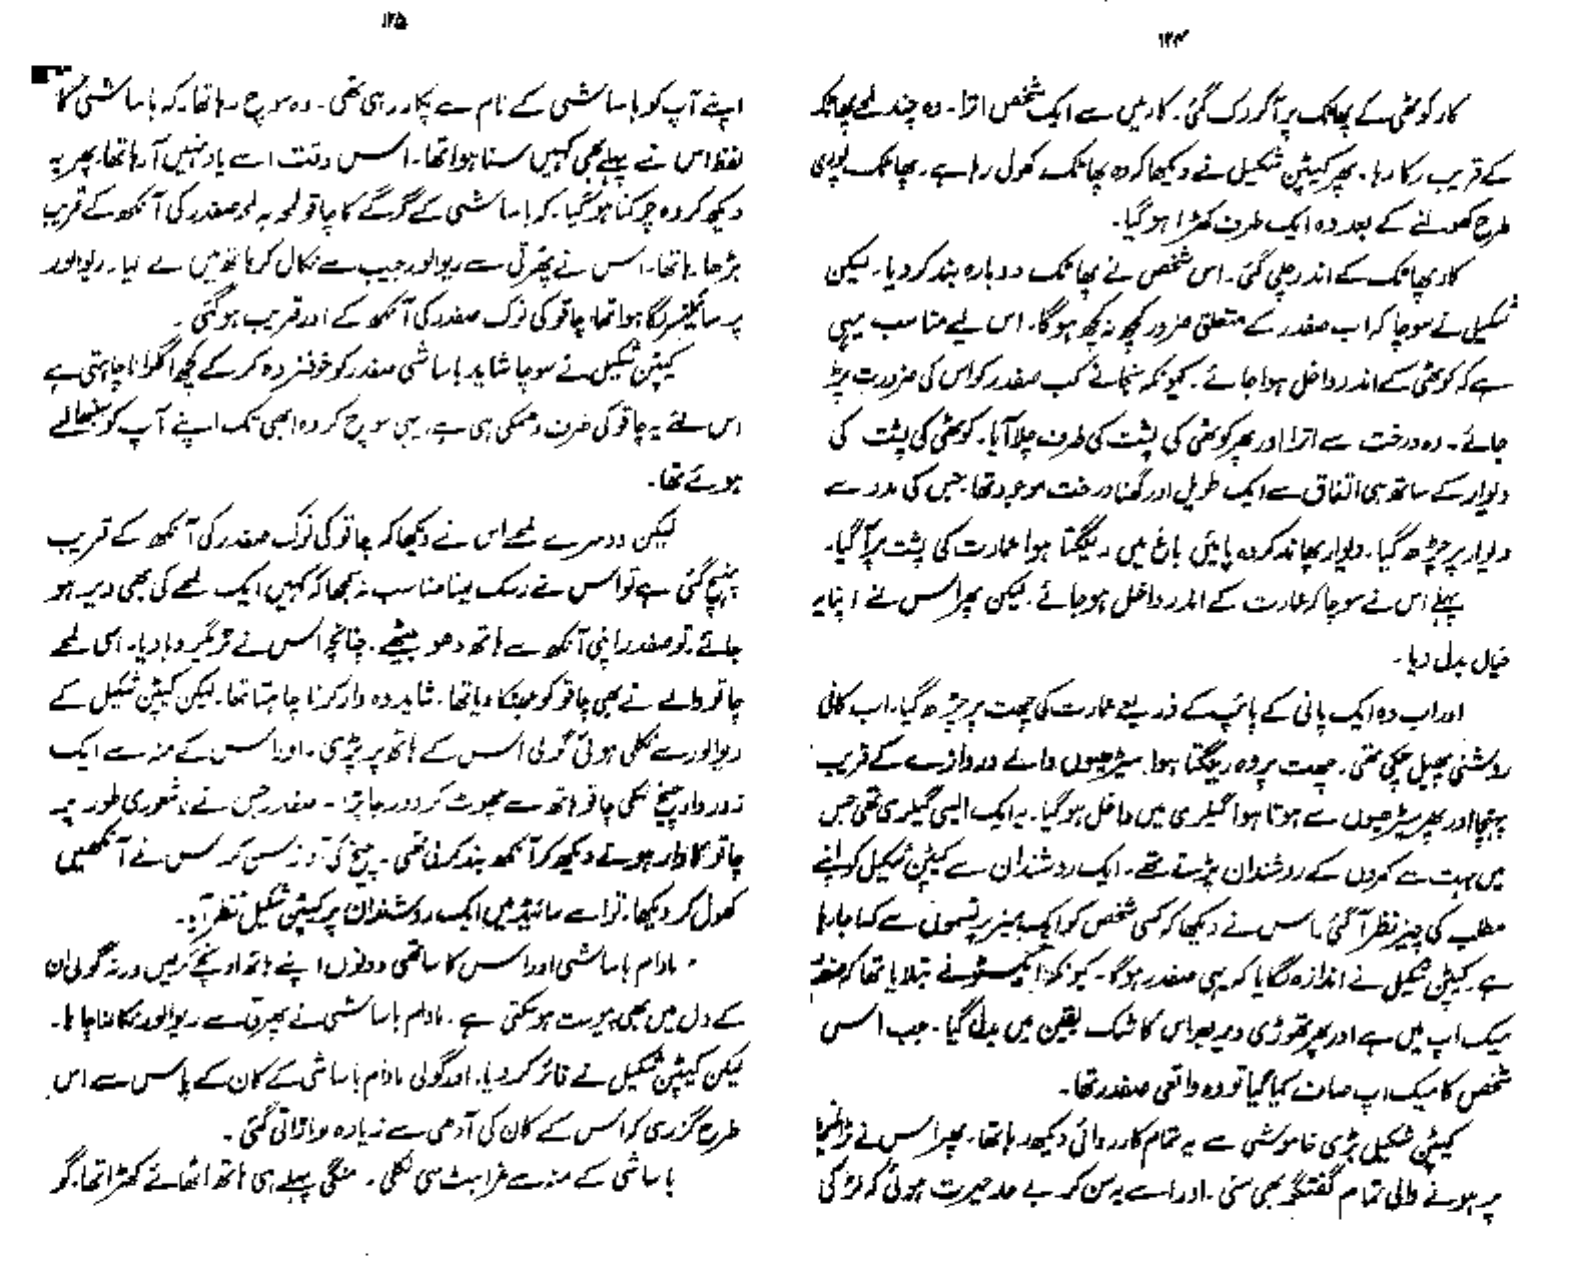 ۱۲۴
کار کوٹھی کے پھاٹک پر آ کر رک گئی۔ کار میں سے ایک شخص اترا۔ وہ چند لمحے پھاٹک
کے قریب رکا رہا۔ پھر کیپٹن شکیل نے دیکھا کہ وہ پھاٹک کھول رہا ہے۔ پھاٹک پوری
طرح کھولنے کے بعد وہ ایک طرف کھڑا ہو گیا۔
کار پھاٹک کے اندر چلی گئی۔ اس شخص نے پھاٹک دوبارہ بند کر دیا۔ لیکن
شکیل نے سوچا کہ اب صفدر کے متعلق ضرور کچھ نہ کچھ ہو گا۔ اس لیے مناسب یہی
ہے کہ کوٹھی کے اندر داخل ہوا جائے۔ کیونکہ نجانے کب صفدر کو اس کی ضرورت پڑ
جائے۔ وہ درخت سے اترا اور پھر کوٹھی کی پشت کی طرف چلا آیا۔ کوٹھی کی پشت کی
دیوار کے ساتھ ہی اتفاق سے ایک طویل اور گھنا درخت موجود تھا جس کی مدد سے
دیوار پر چڑھ گیا۔ دیوار پھاند کر وہ پائیں باغ میں رینگتا ہوا عمارت کی پشت پر آ گیا۔
پہلے اس نے سوچا کہ عمارت کے اندر داخل ہو جائے۔ لیکن پھر اس نے اپنا یہ
خیال بدل دیا۔
اور اب وہ ایک پانی کے پائپ کے ذریعے عمارت کی چھت پر چڑھ گیا۔ اب کافی
روشنی پھیل چکی تھی۔ چھت پر وہ رینگتا ہوا سیڑھیوں والے دروازے کے قریب
پہنچا اور پھر سیڑھیوں سے ہوتا ہوا گیلری میں داخل ہو گیا۔ یہ ایک ایسی گیلری تھی جس
میں بہت سے کمروں کے روشندان پڑتے تھے۔ ایک روشندان سے کیپٹن شکیل کو اپنے
مطلب کی چیز نظر آ گئی۔ اس نے دیکھا کہ کسی شخص کو ایک میز پر تسموں سے کسا جا رہا
ہے۔ کیپٹن شکیل نے اندازہ لگایا کہ یہی صفدر ہو گا۔ کیونکہ ایکسٹو نے بتلایا تھا کہ صفدر
میک اپ میں ہے اور پھر تھوڑی دیر بعد اس کا شک یقین میں بدل گیا۔ جب اس
شخص کا میک اپ صاف کیا گیا تو وہ واقعی صفدر تھا۔
کیپٹن شکیل بڑی خاموشی سے یہ تمام کارروائی دیکھ رہا تھا۔ پھر اس نے ٹرانسمیٹر
پر ہونے والی تمام گفتگو بھی سنی۔ اور اسے یہ سن کر بے حد حیرت ہوئی کہ لڑکی
۱۲۵
اپنے آپ کو باساشی کے نام سے پکار رہی تھی۔ وہ سوچ رہا تھا۔ کہ باساشی کا
لفظ اس نے پہلے بھی کہیں سنا ہوا تھا۔ اس وقت اسے یاد نہیں آ رہا تھا۔ پھر یہ
دیکھ کر وہ چوکنا ہو گیا۔ کہ باساشی کے گرگے کا چاقو لمحہ بہ لمحہ صفدر کی آنکھ کے قریب
بڑھا رہا تھا۔ اس نے پھرتی سے ریوالور جیب سے نکال کر ہاتھ میں لے لیا۔ ریوالور
پر سائیلنسر لگا ہوا تھا۔ چاقو کی نوک صفدر کی آنکھ کے اور قریب ہو گئی۔
کیپٹن شکیل نے سوچا شاید باساشی صفدر کو خوفزدہ کر کے کچھ اگلوانا چاہتی ہے
اس لئے یہ چاقو کی صرف دھمکی ہی ہے۔ یہی سوچ کر وہ ابھی تک اپنے آپ کو سنبھالے
ہوئے تھا۔
لیکن دوسرے لمحے اس نے دیکھا کہ چاقو کی نوک صفدر کی آنکھ کے قریب
پہنچ گئی ہے تو اس نے رسک لینا مناسب نہ سمجھا کہ کہیں ایک لمحے کی بھی دیر ہو
جائے تو صفدر اپنی آنکھ سے ہاتھ دھو بیٹھے۔ چنانچہ اس نے ٹریگر دبا دیا۔ اسی لمحے
چاقو والے نے بھی چاقو کو جھٹکا دیا تھا۔ شاید وہ وار کرنا چاہتا تھا۔ لیکن کیپٹن شکیل کے
ریوالور سے نکلی ہوئی گولی اس کے ہاتھ پر پڑی۔ اور اس کے منہ سے ایک
زور دار چیخ نکلی چاقو ہاتھ سے چھوٹ کر دور جا پڑا۔ صفدر جس نے لاشعوری طور پر
چاقو کا وار ہوتے دیکھ کر آنکھ بند کر لی تھی۔ چیخ کی آواز سن کر اس نے آنکھیں
کھول کر دیکھا۔ تو اسے سائیڈ میں ایک روشندان پر کیپٹن شکیل نظر آیا۔
مادام باساشی اور اس کا ساتھی دونوں اپنے ہاتھ اونچے کر لیں ورنہ گولی ان
کے دل میں بھی پیوست ہو سکتی ہے۔ مادام باساشی نے پھرتی سے ریوالور نکالنا چاہا۔
لیکن کیپٹن شکیل نے فائر کر دیا۔ اور گولی مادام باساشی کے کان کے پاس سے اس
طرح گزری کہ اس کے کان کی آدھی سے زیادہ لو اڑاتی گئی۔
باساشی کے منہ سے غراہٹ سی نکلی۔ منگی پہلے ہی ہاتھ اٹھائے کھڑا تھا۔ گو